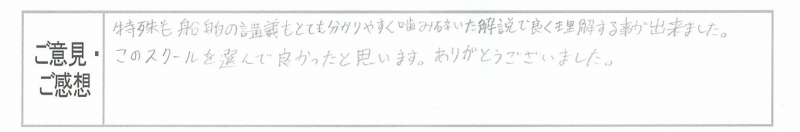 ご意見・
ご感想
特殊も船舶の講義もとても分かりやすく噛み砕いた解説で良く理解する事が出来ました。
このスクールを選んで良かったと思います。ありがとうございました。